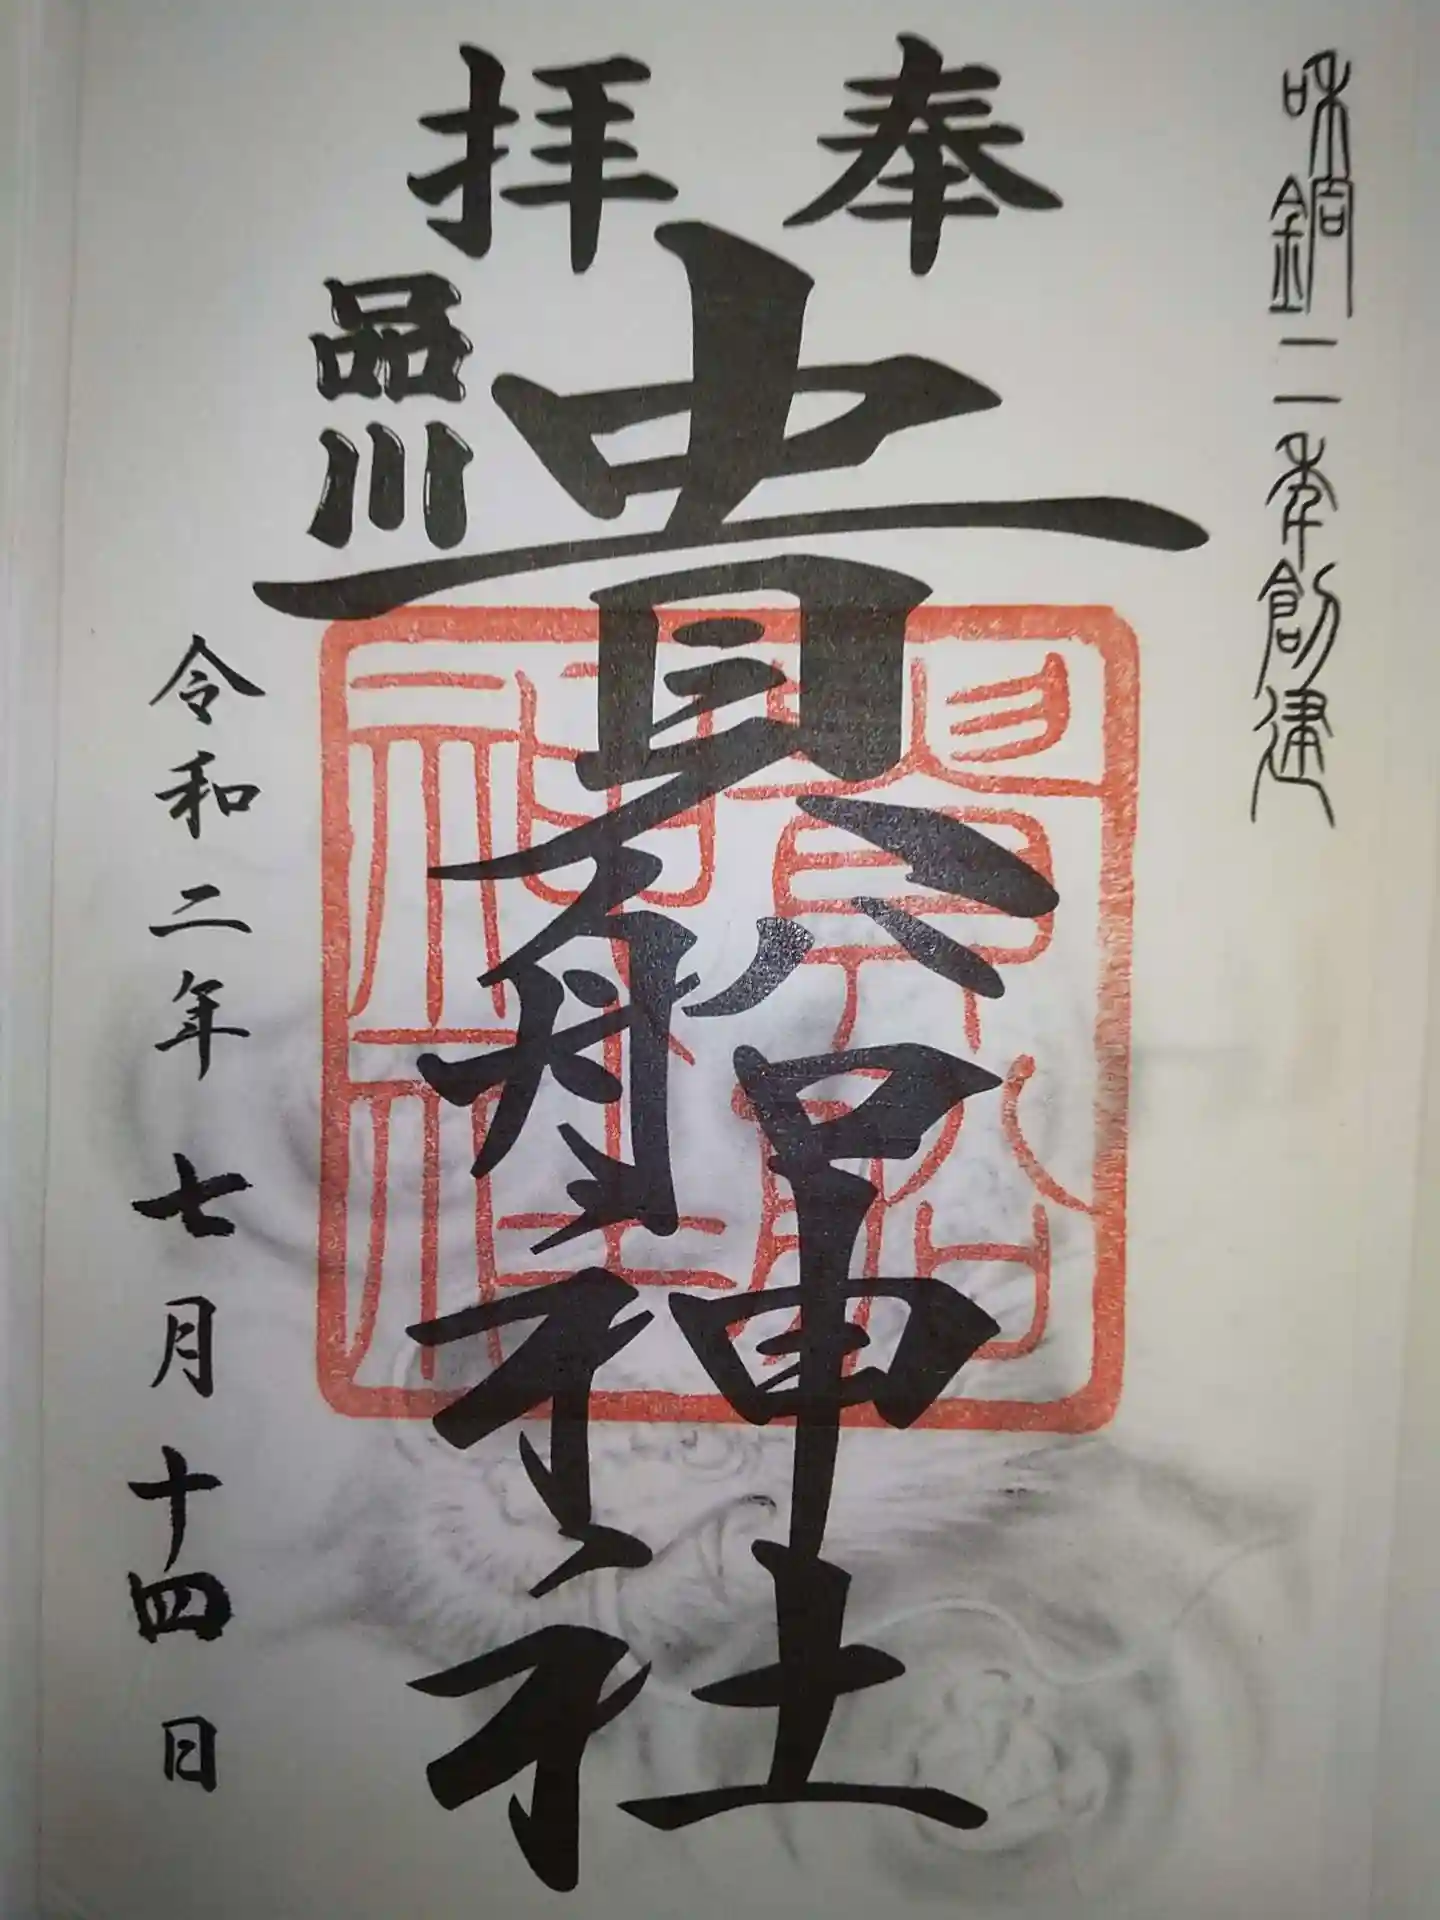 和銅二年創建
奉拝
貴船神社
品川
令和二年七月十四日
貴船神社